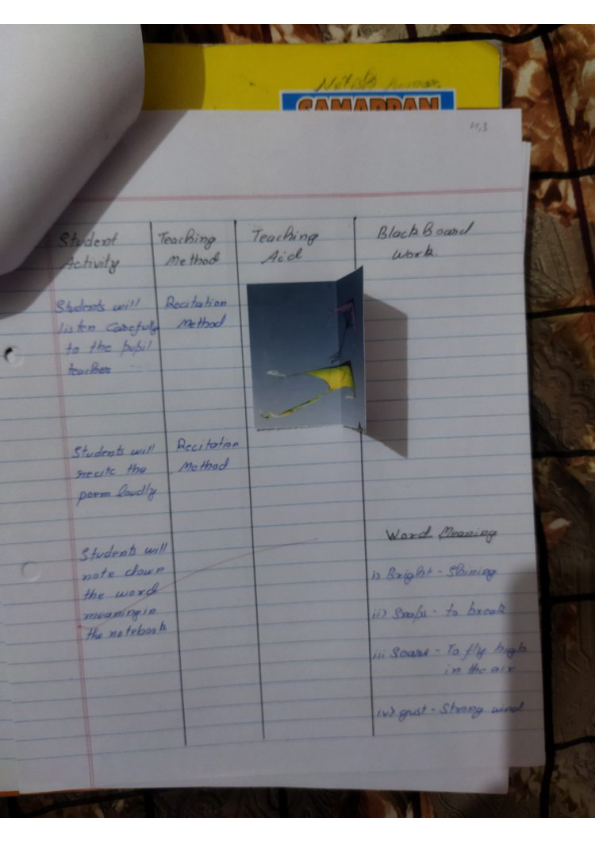 SAMARPAN
Student Activity
Teaching Method
Teaching Aid
BlackBoard Work.
Students will
listen carefully
to the pupil
teacher
Recitation
Method
Students will
recite the
poem loudly
Recitation
Method
Students will
note down
the word
meaning in
the notebook
Word Meaning
i) Bright - Shining
ii) Snaps - to break
iii Soars - To fly high
in the air
iv) gust - Strong wind